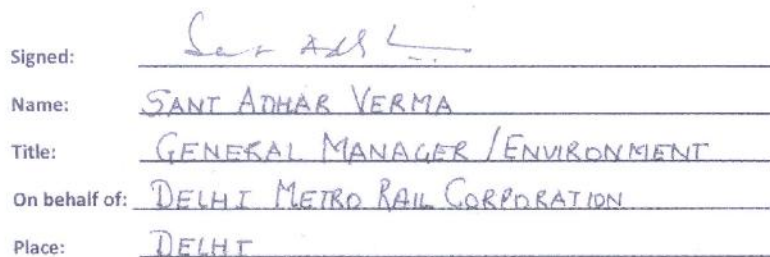 Signed:
Name: SANT ADHAR VERMA
Title: GENERAL MANAGER/ENVIRONMENT
On behalf of: DELHI METRO RAIL CORPORATION
Place: DELHI